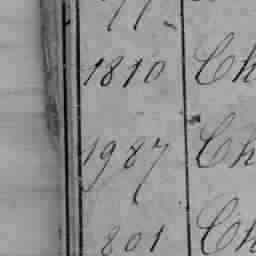 1810 Ch
1987 Ch
801 Ch